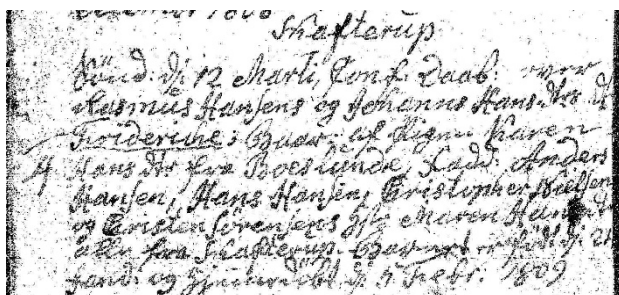 Skafterup
Sönd: d: 12 Marti, Conf. Daab: over
Rasmus Hansens og Johanne Hans dtrs d:
Friderike: Baar: af Pigen Karen
4 Hans dtr fra Boeslunde, Fadd: Anders
Hansen, Hans Hansen, Christopher Nielsen
og Christen Sörensens Maren Hans dtr
alle fra Skafterup. Barnet er född d: 21
Jan: og hjemmedöbt d: 5 Febr: 1809